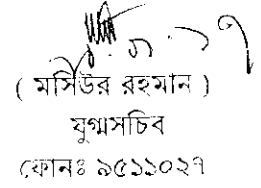 ( মসিউর রহমান )
যুগ্মসচিব
ফোনঃ ৯৫১১০২৭